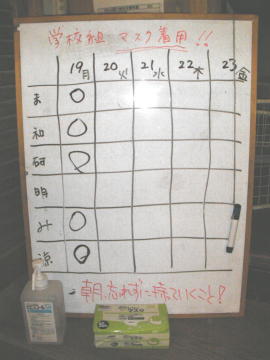 学校組 マスク着用!!
19月 20火 21水 22木 23金
ま ○
和 ○
研 ○
明
み ○
涼 ○
朝、忘れずに持っていくこと!